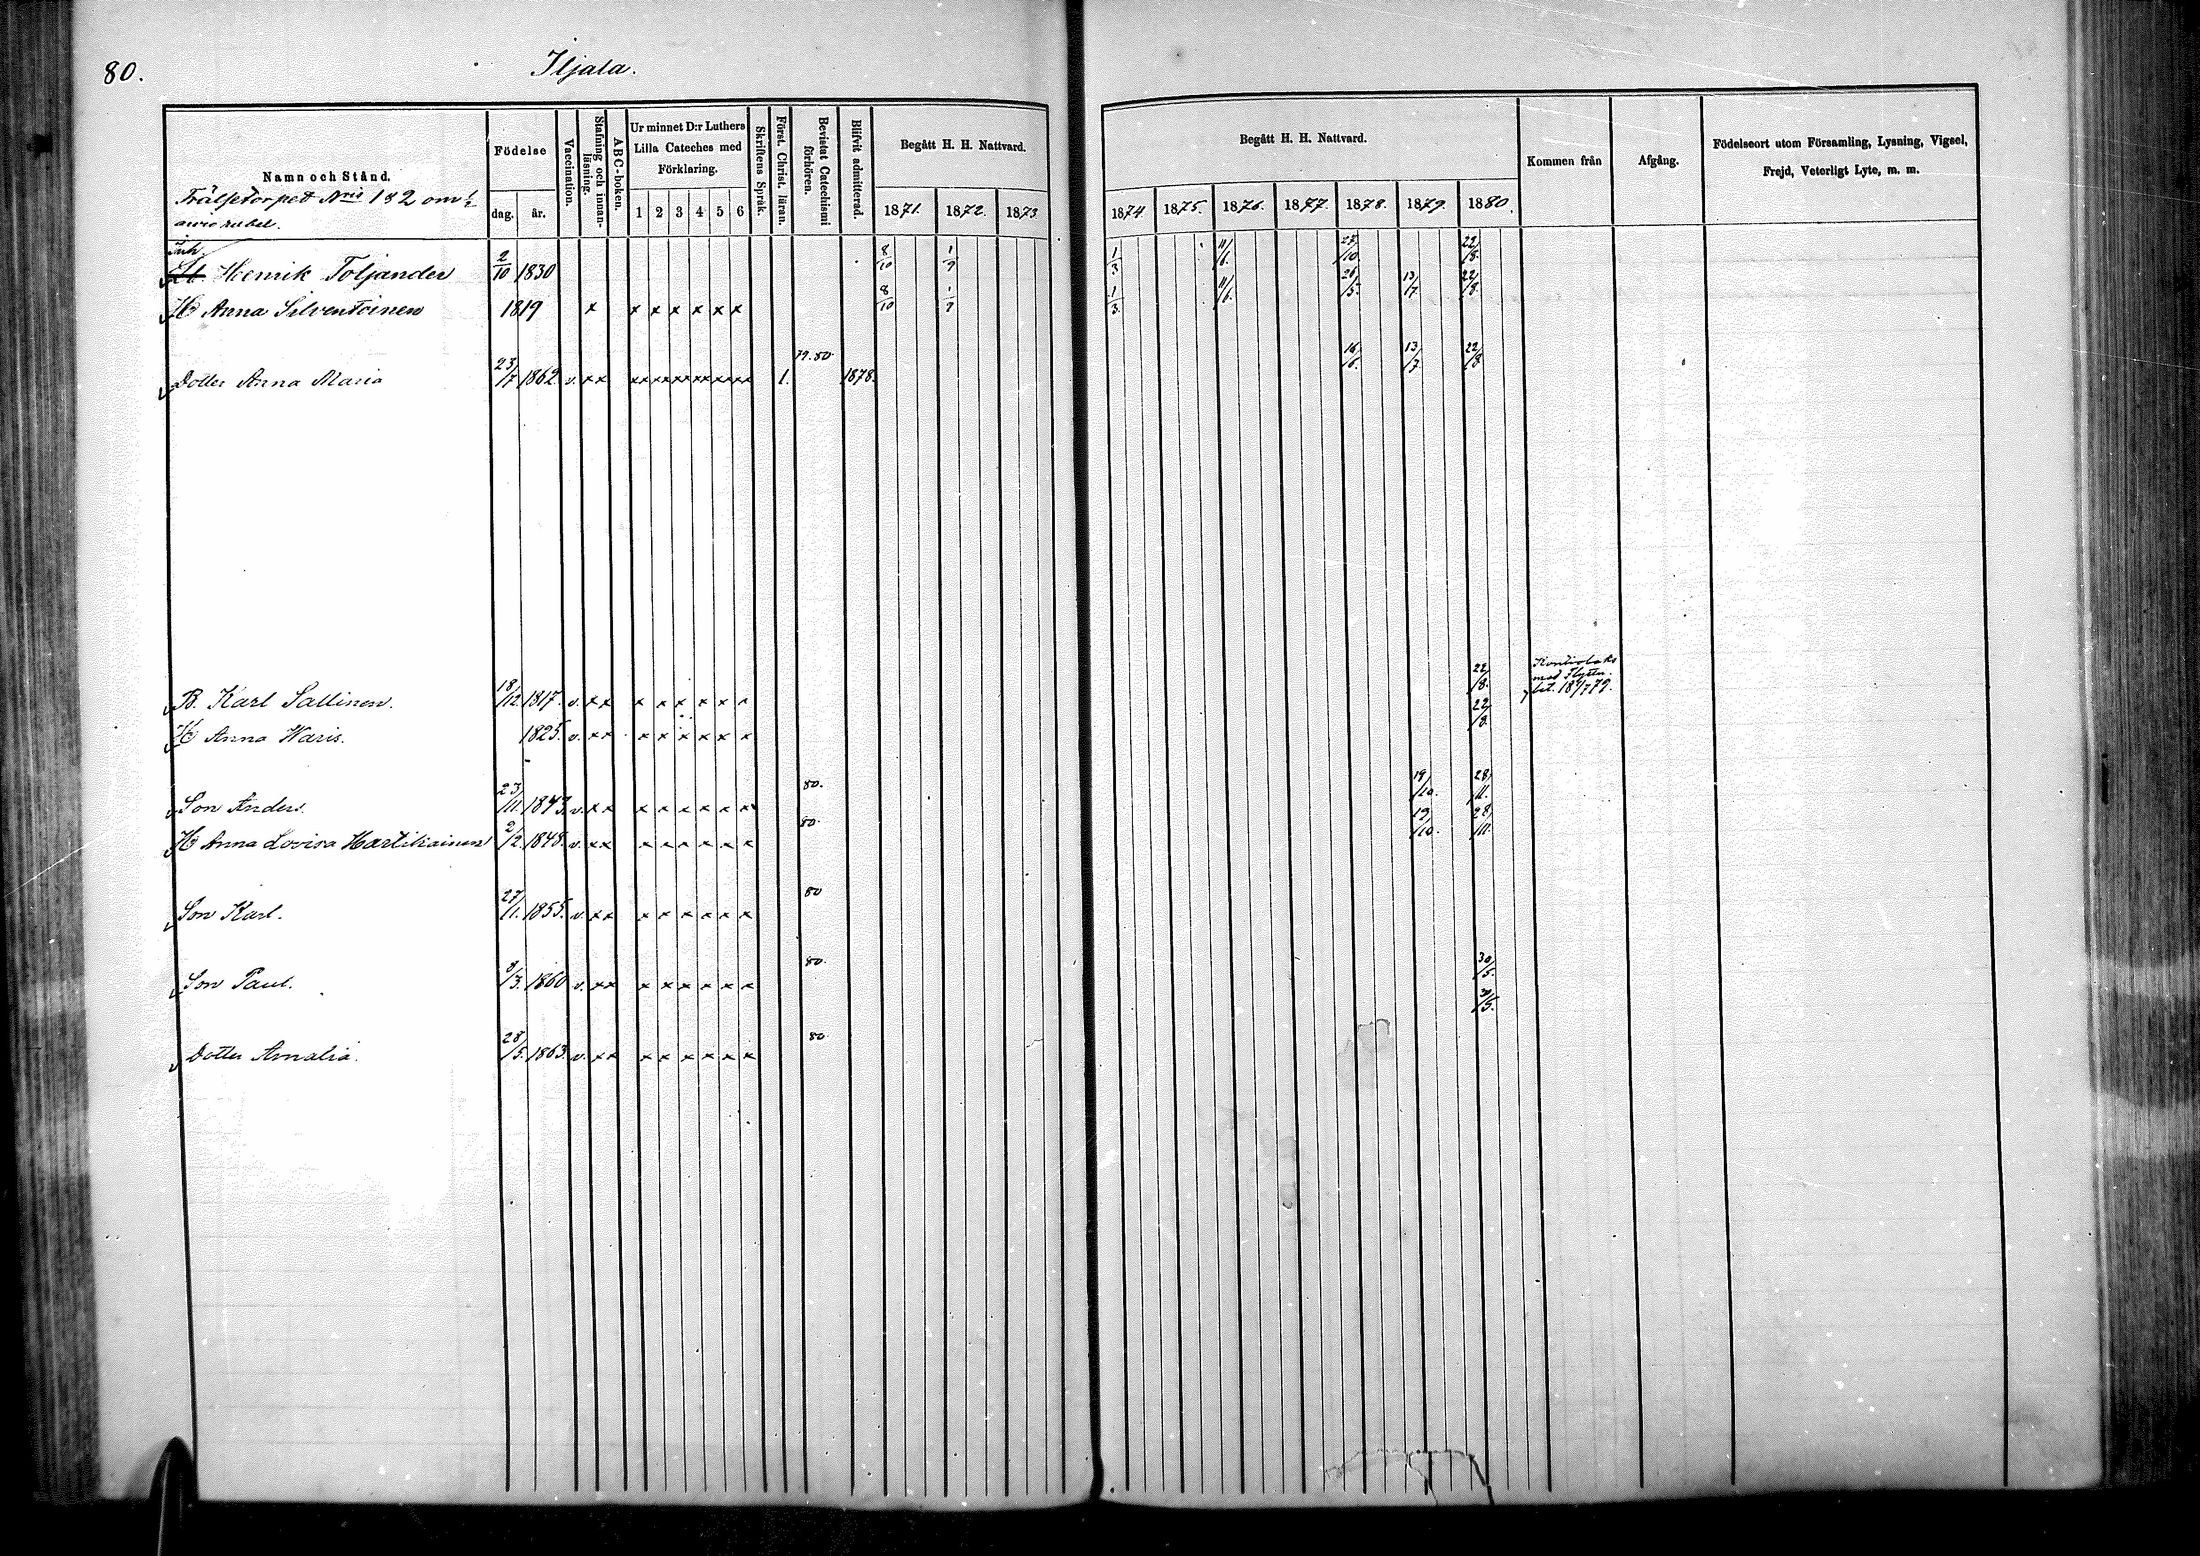 80.
Iljala.
Namn och Stånd.
Födelse
dag.
år.
Vaccination.
Stafning och innan-läsning.
ABC-boken.
Ur minnet D:r Luthers
Lilla Cateches med
Förklaring.
1 2 3 4 5 6
Skriftens Språk.
Först. Christ. läran.
Bevistat Catechismi förhören.
Blifvit admitterad.
Begått H. H. Nattvard.
1871. 1872. 1873
Begått H. H. Nattvard.
1874. 1875. 1876. 1877. 1878. 1879. 1880.
Kommen från
Afgång.
Födelseort utom Församling, Lysning, Vigsel,
Frejd, Veterligt Lyte, m. m.
Frälsetorpet N:ris 1 & 2 om 1/2
Inh.
Henrik Toljander 2/10 1830 8/10 1/9 1/3 11/6. 27/10. 22/8.
H Anna Silventoinen 1819 x x x x x x x 8/10 1/9 1/3. 11/6. 26/5. 13/7. 22/8.
Dotter Anna Maria 23/7 1862 v. xx xx xx xx xx xx xx 1. 79.80. 1878. 16/6. 13/7. 22/8
B. Karl Sallinen. 18/12 1817. v. xx x x x x x x 22/8. Kontiolaks
med Flyttn.
bet. 18/7 79.
H Anna Waris. 1825. v. xx x x x x x x 22/8.
Son Anders. 23/11. 1843. v. xx x x x x x x 80. 19/10. 28/11.
H Anna Lovisa Hartikainen 2/2. 1848. v. xx x x x x x x 80. 19/10. 28/11.
Son Karl. 27/11. 1855. v. xx x x x x x x 80
Son Paul. 9/3. 1860 v. xx x x x x x x 80. 30/5.
30/5.
Dotter Amalia. 28/5. 1863. v. xx x x x x x x 80.